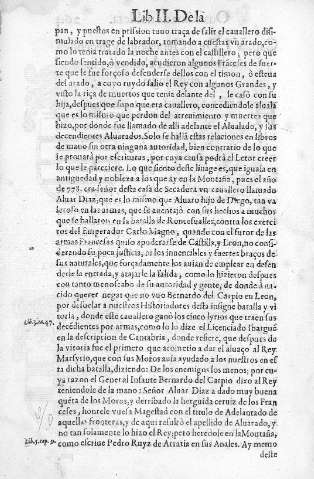 Lib II. De la
pan, y puestos en prission tuuo traça de salir el cauallero disi-
mulado en trage de labrador, tomando a cuestas vn arado, co-
mo lo tenia tratado la noche antes con el castillero, pero que
siendo sentido, ò vendido, acudieron algunos Fraceses de fuerte
que le fue forçoso defenderse dellos con el timon, ò esteua
del arado, a cuyo ruydo salio el Rey con algunos Grandes, y
visto la riça de muertos que tenia delante del, le casò con su
hija, despues que supo que era cauallero, concediendole aloalà
que es lo mismo que perdon del atreuimiento y muertes que
hizo, por donde fue llamado de alli adelante el Alualado, y sus
decendientes Aluarados. Solo se hallã estas relaciones en libros
de mano sin otra ninguna autoridad, bien contrario de lo que
se prouarà por escrituras, por cuya causa podrà el Letor creer
lo que le pareciere. Lo que siento deste linage es, que iguala en
antiguedad y nobleza a los que ay en la Montaña, pues el año
de 778. era señor desta casa de Secadura vn cauallero llamado
Aluar Diaz, que es lo mismo que Aluaro hijo de Diego, tan va
leroso en las armas, que se auentajò con sus hechos a muchos
que se hallaron en la batalla de Roncesualles, contra los exerci
tos del Emperador Carlo Magno, quando con el furor de las
armas Francesas quiso apoderarse de Castilla, y Leon, no consi-
derando su poca justicia, ni los inuencibles y fuertes braços de
sus naturales, que forçadamente los auian de emplear en defen
derle la entrada, y atajarle la salida, como lo hizieron despues
con tanto menoscabo de su autoridad y gente, de donde à na-
cido querer negar que no vuo Bernardo del Carpio en Leon,
por desuelar a nuestros Historiadores desta insigne batalla y vi
toria, donde este cauallero ganò los cinco lyrios que traen sus
decẽdientes por armas, como lo dize el Licenciado Ibarguẽ
en la description de Cantabria, donde refiere, que despues de
la vitoria fue el primero que acometio a dar el aluaço al Rey
Marsyrio, que con sus Moros auia ayudado a los nuestros en es
ta dicha batalla, diziendo: De los enemigos los menos; por cu
ya razon el General Infante Bernardo del Carpio dixo al Rey
teniendole de la mano: Señor Aluar Diaz a dado muy buena
quẽta de los Moros, y derribado la herguida ceruiz de los Fran
ceses, honrele vuesa Magestad con el titulo de Adelantado de
aquellas fronteras, y de aqui resultò el apellido de Aluarado, y
no tan solamente lo hizo el Rey; pero heredole en la Montaña,
como escriue Pedro Ruyz de Arratia en sus Anales. Ay memo
deste